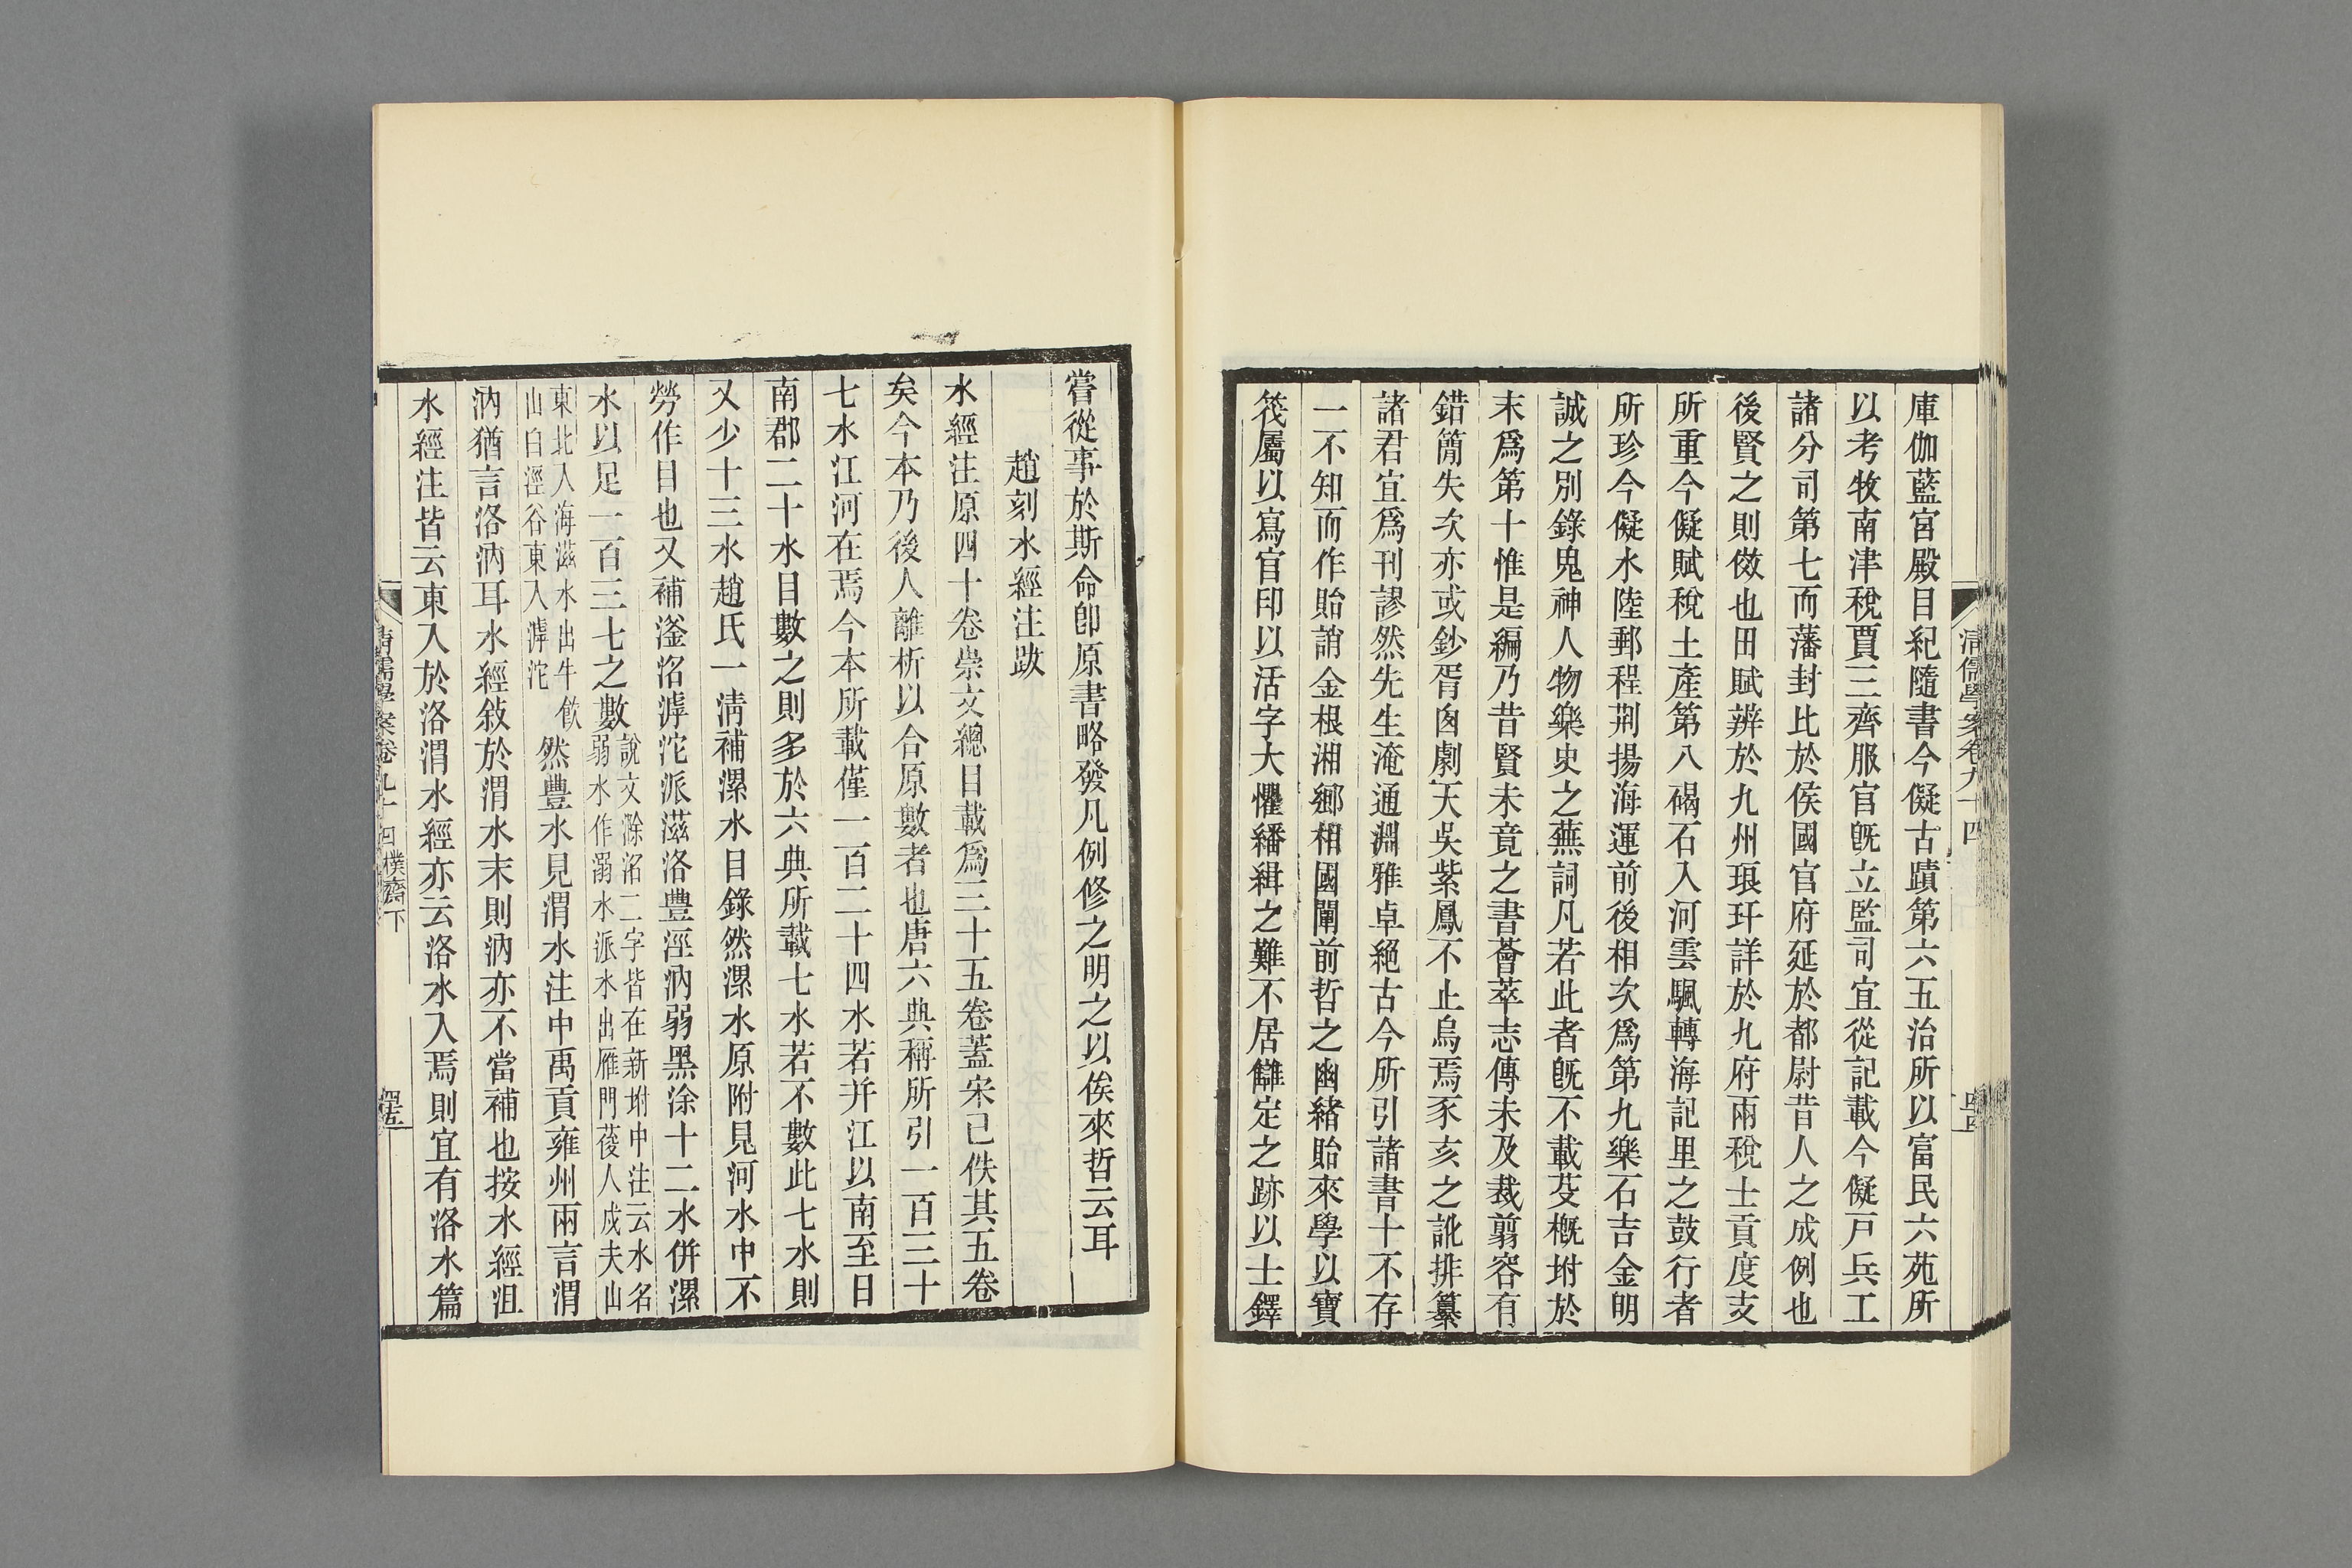 庫伽藍宮殿目紀隨書今儗古蹟第六五治所以富民六苑所
以考牧南津稅賈三齊服官旣立監司宜從記載今儗戸兵工
諸分司第七而藩封比於侯國官府延於都尉昔人之成例也
後賢之則傚也田賦辨於九州琅玕詳於九府兩稅士貢度支
所重今儗賦稅土產第八碣石入河雲颿轉海記里之鼓行者
所珍今儗水陸郵程荆揚海運前後相次爲第九樂石吉金明
誠之別錄鬼神人物樂史之蕪詞凡若此者旣不載芟槪坿於
末爲第十惟是編乃昔賢未竟之書薈萃志傳未及裁翦容有
錯簡失次亦或鈔胥囪劇天吳紫鳳不止烏焉豕亥之訛排纂
諸君宜爲刊謬然先生淹通淵雅卓絕古今所引諸書十不存
一不知而作貽誚金根湘鄉相國闡前哲之幽緒貽來學以寶
筏屬以寫官印以活字大懼繙緝之難不居讎定之跡以士鐸
清儒學案卷九十四
四十四
嘗從事於斯命卽原書略發凡例修之明之以俟來哲云耳
趙刻水經注跋
水經注原四十卷崇文總目載爲三十五卷蓋宋已佚其五卷
矣今本乃後人離析以合原數者也唐六典稱所引一百三十
七水江河在焉今本所載僅一百二十四水若并江以南至日
南郡二十水目數之則多於六典所載七水若不數此七水則
又少十三水趙氏一淸補漯水目錄然漯水原附見河水中不
勞作目也又補滏洺滹沱派滋洛豐涇汭弱黑涂十二水併漯
水以足一百三七之數
說文滁洺二字皆在新坿中注云水名
弱水作溺水派水出雁門葰人戍夫山
東北入海滋水出牛飮
山白涇谷東入滹沱
然豐水見渭水注中禹貢雍州兩言渭
汭猶言洛汭耳水經敍於渭水末則汭亦不當補也按水經沮
水經注皆云東入於洛渭水經亦云洛水入焉則宜有洛水篇
清儒學案卷九十四 樸齋下